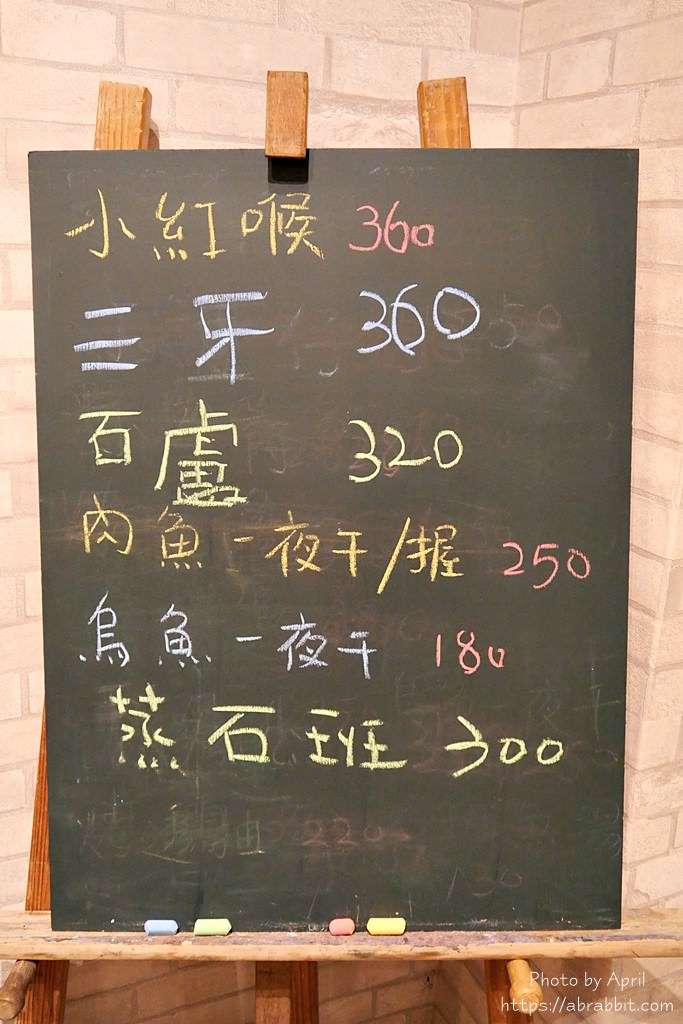 小紅喉 360
三牙 360
石盧 320
肉魚一夜干/握 250
烏魚一夜干 180
蒸石班 300
220
Photo by April
https://abrabbit.com